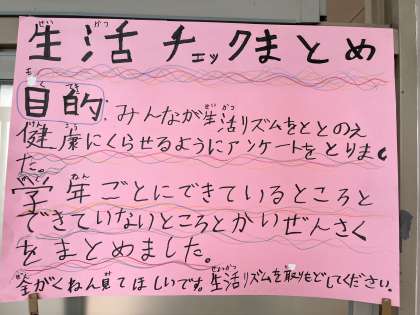 生活チェックまとめ
目的、みんなが生活リズムをととのえ
健康にくらせるようにアンケートをとりまし
た。
学年ごとにできているところと
できていないところとかいぜんさく
をまとめました。
全がくねん見てほしいです。生活リズムを取りもどしてください。